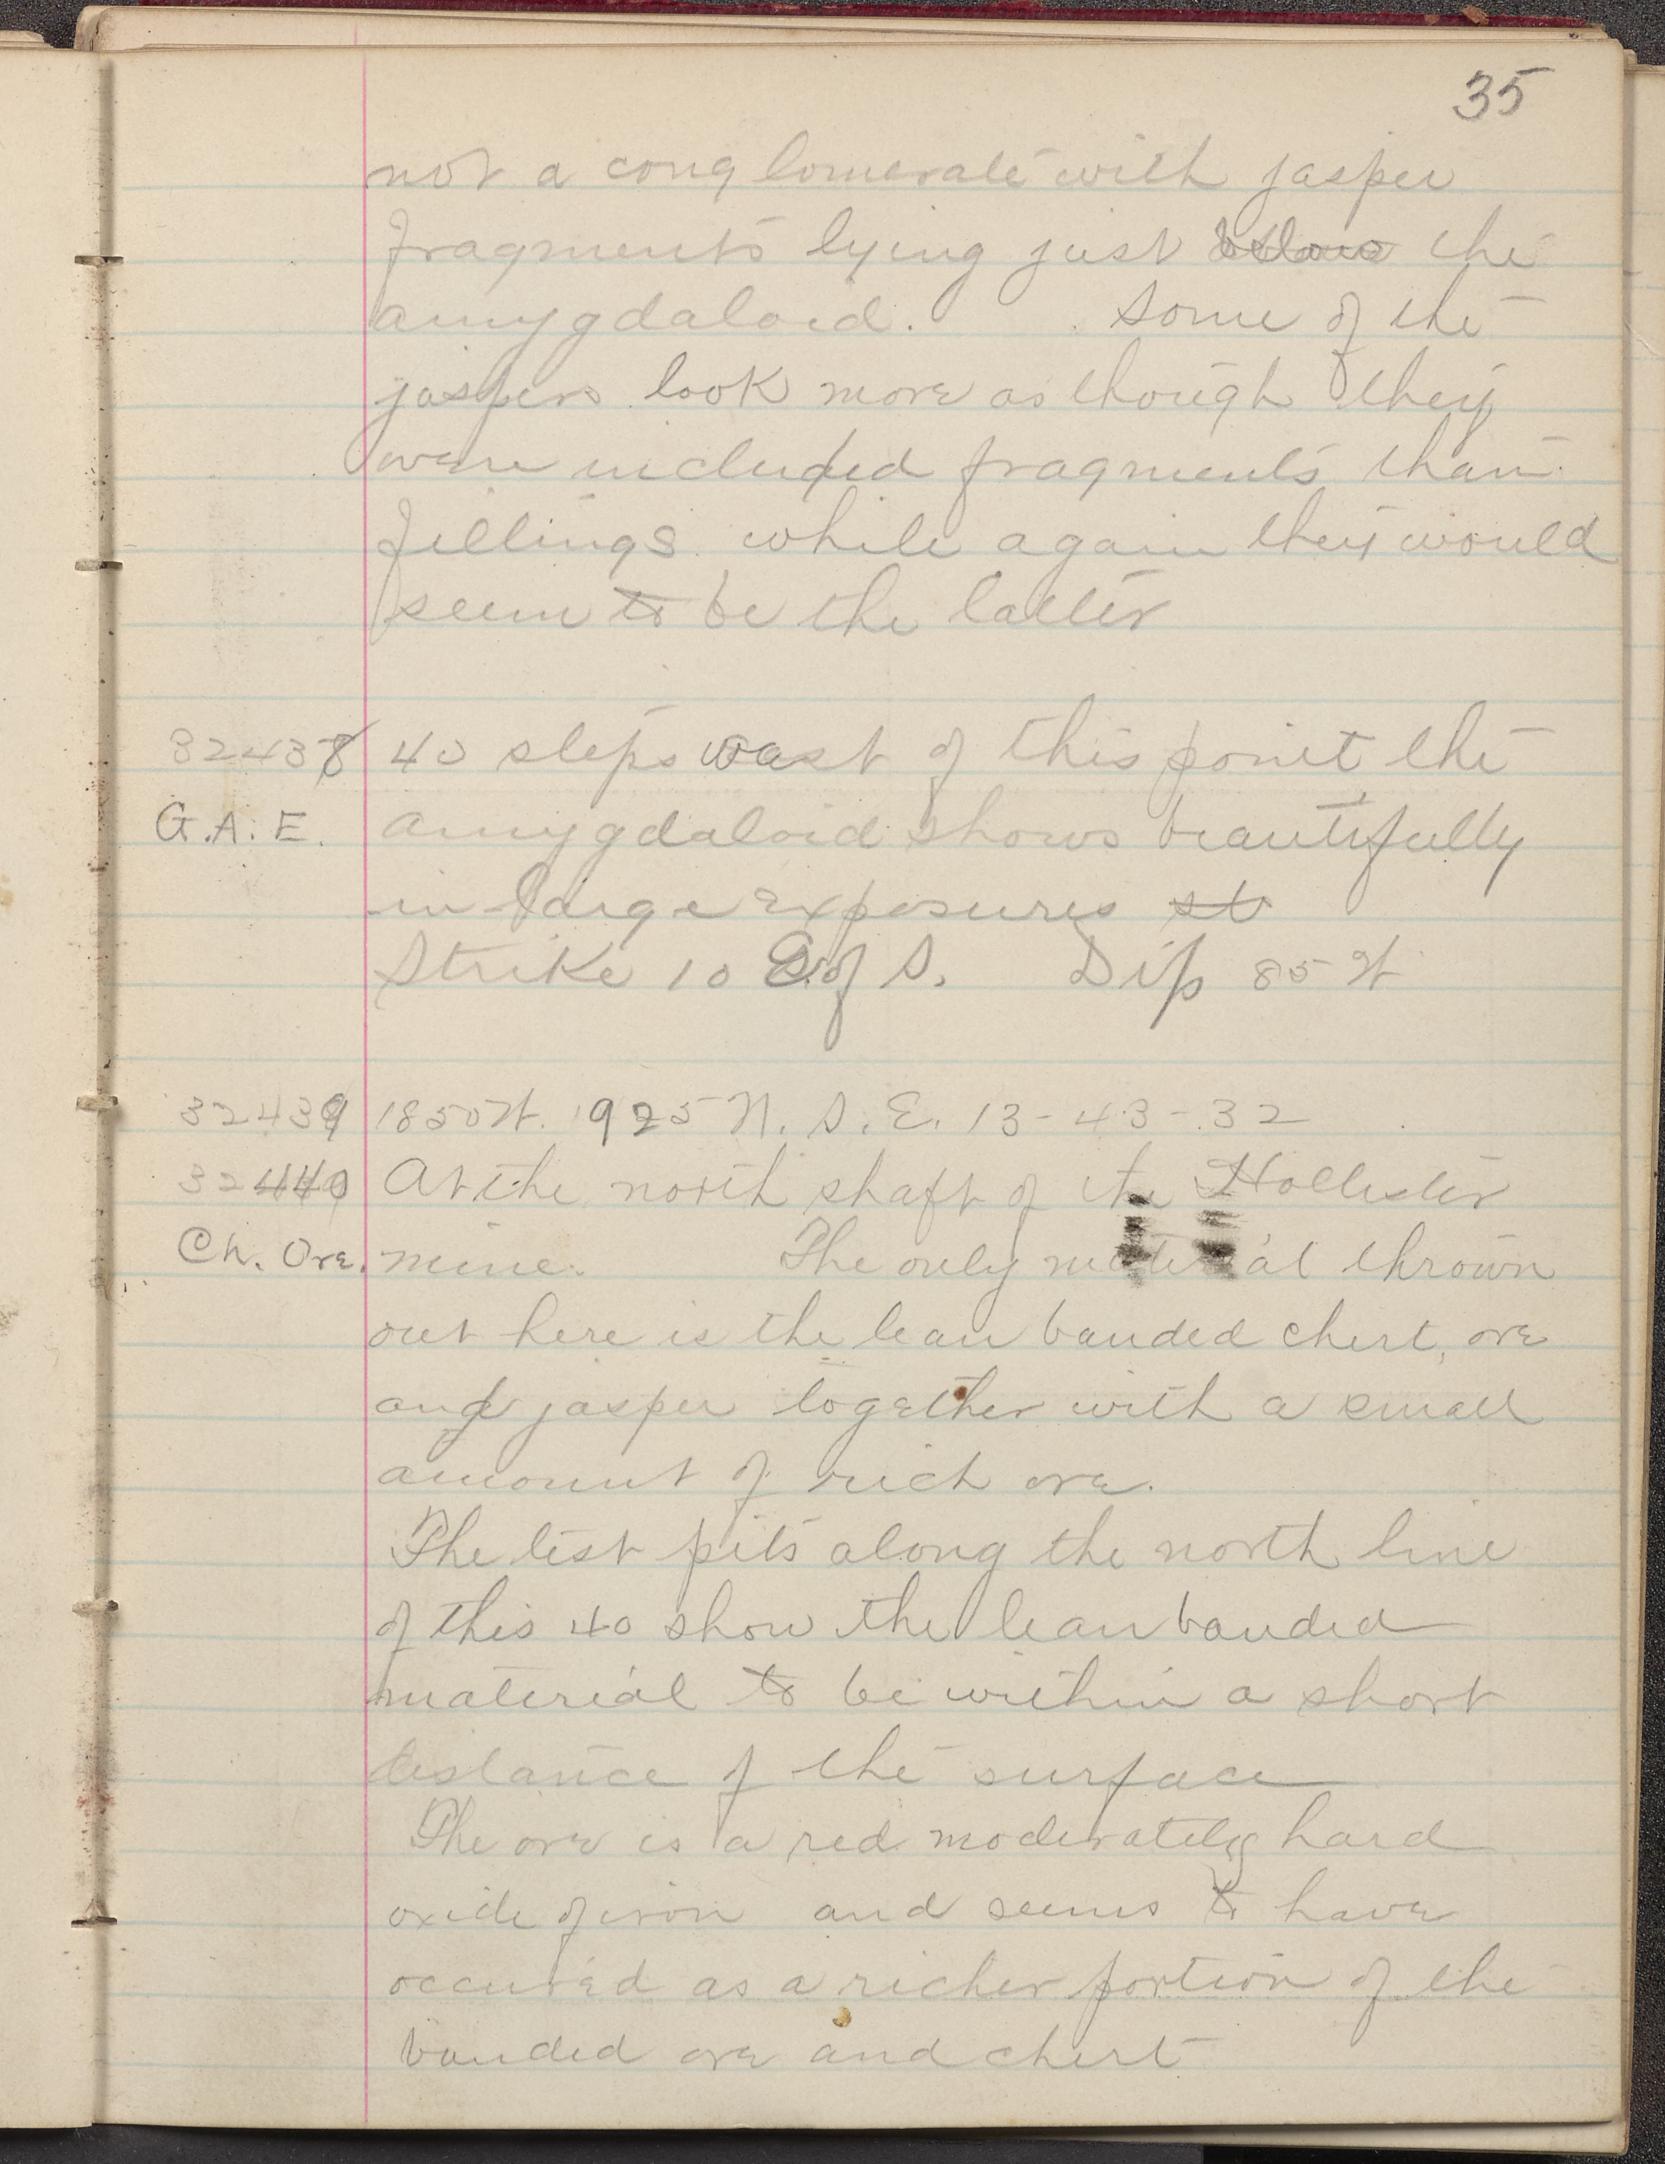 35
not a conglomerate with jasper
fragments lying just below the
amygdaloid. Some of the
jaspers look more as though they
were included fragments than
fillings while again they would
seem to be the latter
32438 40 steps east of this point the
G.A.E. amygdaloid shows beautifully
in large exposures st
Strike 10 E of S. Dip 85 W
32439 1850 W. 1925 N. S.E. 13-43-32
32440 At the north shaft of the Hollister
Ch. Ore. mine. The only material thrown
out here is the lean banded chert, ore
and jasper together with a small
amount of rich ore.
The test pits along the north line
of this 40 show the lean banded
material to be within a short
distance of the surface
The ore is a red moderately hard
oxide of iron and seems to have
occured as a richer portion of the
banded ore and chert